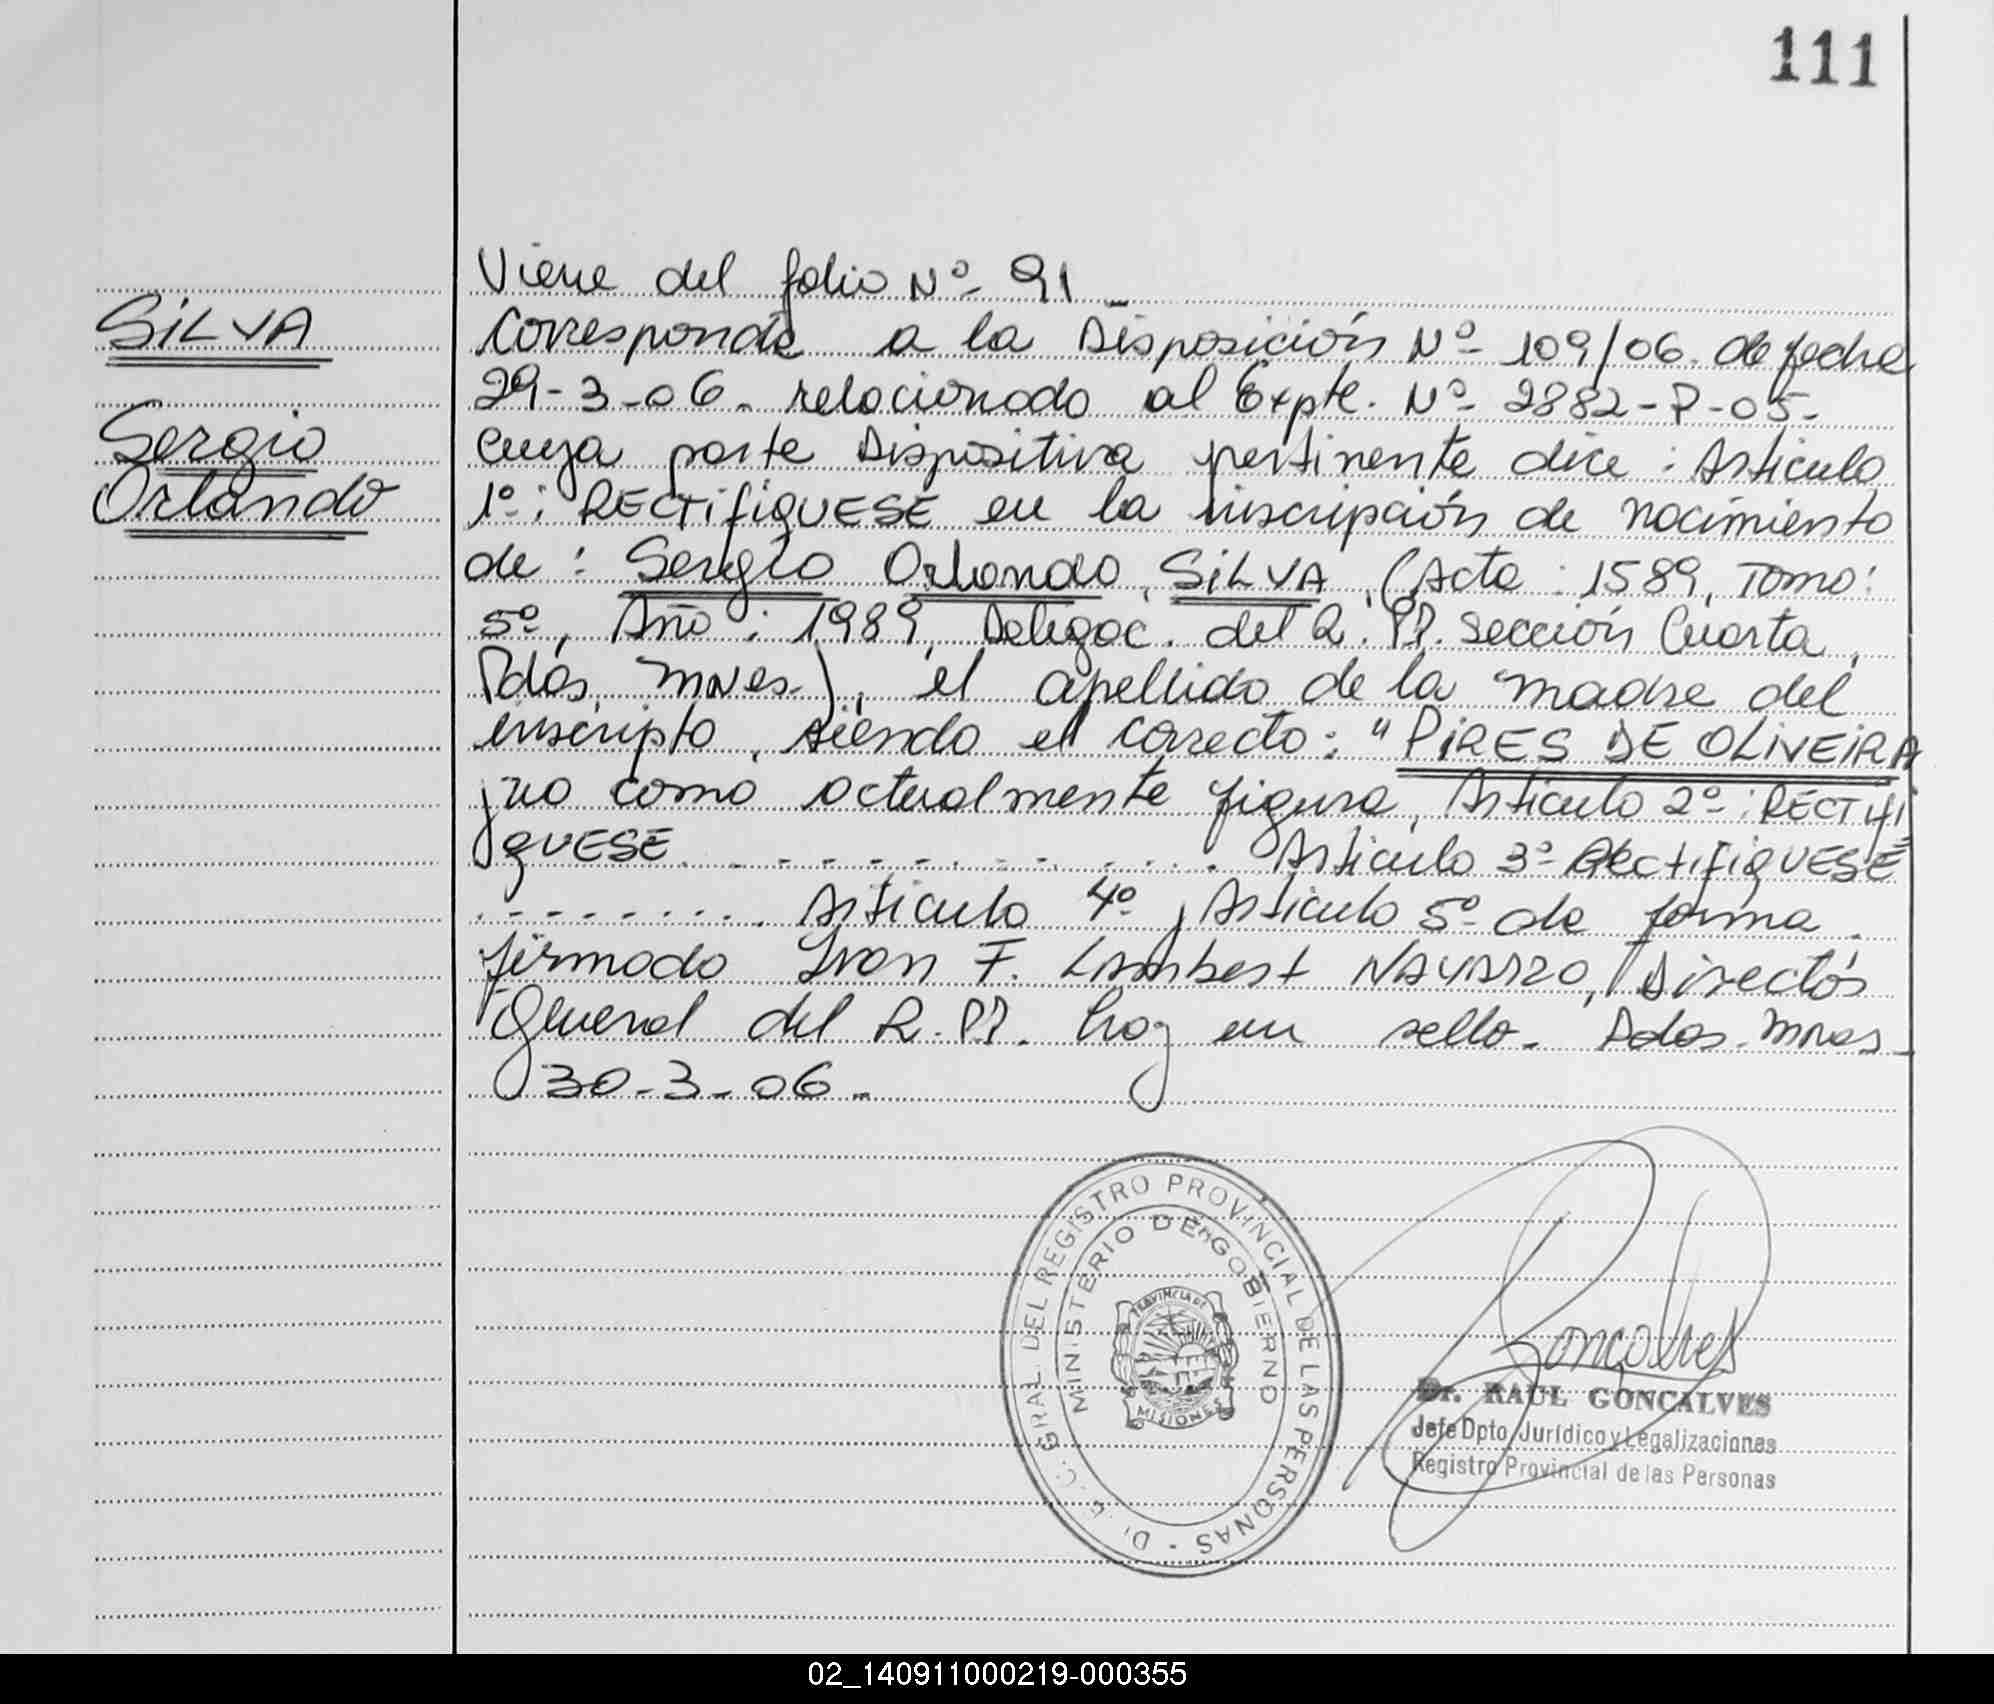 111
SILVA
Sergio
Orlando
Viene del folio Nº 91
Corresponde a la Disposición Nº 109/06. de fecha
29-3-06. relacionado al Expte. Nº 2882-P-05-
cuya parte Dispositiva pertinente dice: Artículo
1º: RECTIFIQUESE en la inscripción de nacimiento
de: Sergio Orlando SILVA (Acta: 1589, Tomo:
5º, Año: 1989, Delegac. del R.PP. Sección Cuarta,
Pdas, Mnes.), el apellido de la madre del
inscripto, siendo el correcto: "PIRES DE OLIVEIRA
y no como actualmente figura, Artículo 2º: RECTIFI
QUESE. - - - - - - - - - - Artículo 3º RectIFIQUESE
- - - - - - - - . Artículo 4º y Artículo 5º de forma.
firmado Ivan F. Lambert NAVARRO, Director
General del R.PP. hay un sello. Pdas. Mnes-
30-3-06.-
DIREC. GRAL. DEL REGISTRO PROVINCIAL DE LAS PERSONAS -
MINISTERIO DE GOBIERNO
PROVINCIA DE
MISIONES
Goncalves
Dr. RAUL GONCALVES
Jefe Dpto. Jurídico y Legalizaciones
Registro Provincial de las Personas
02_140911000219-000355